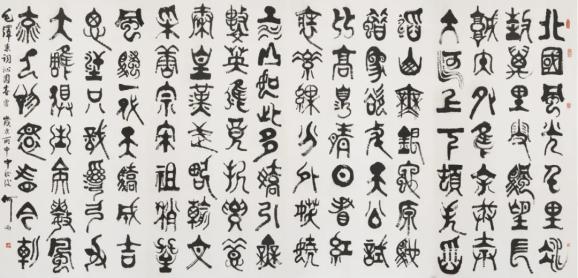 北國風光千里冰
封萬里雪飄望長
城內外惟餘莽莽
大河上下頓失滔
滔山舞銀蛇原馳
蠟象欲與天公試
比高須晴日看紅
裝素裹分外妖嬈
江山如此多嬌引無
數英雄競折腰惜
秦皇漢武略輸文
采唐宗宋祖稍遜
風騷一代天驕成吉
思汗只識彎弓射
大雕俱往矣數風
流人物還看今朝
毛澤東詞沁園春雪 歲次丙申中秋